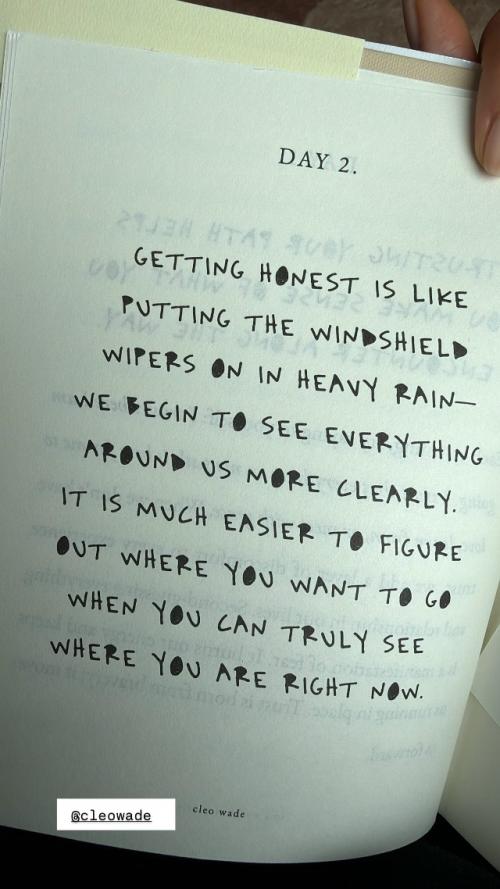 DAY 2.
GETTING HONEST IS LIKE
PUTTING THE WINDSHIELD
WIPERS ON IN HEAVY RAIN—
WE BEGIN TO SEE EVERYTHING
AROUND US MORE CLEARLY.
IT IS MUCH EASIER TO FIGURE
OUT WHERE YOU WANT TO GO
WHEN YOU CAN TRULY SEE
WHERE YOU ARE RIGHT NOW.
cleo wade
@cleowade